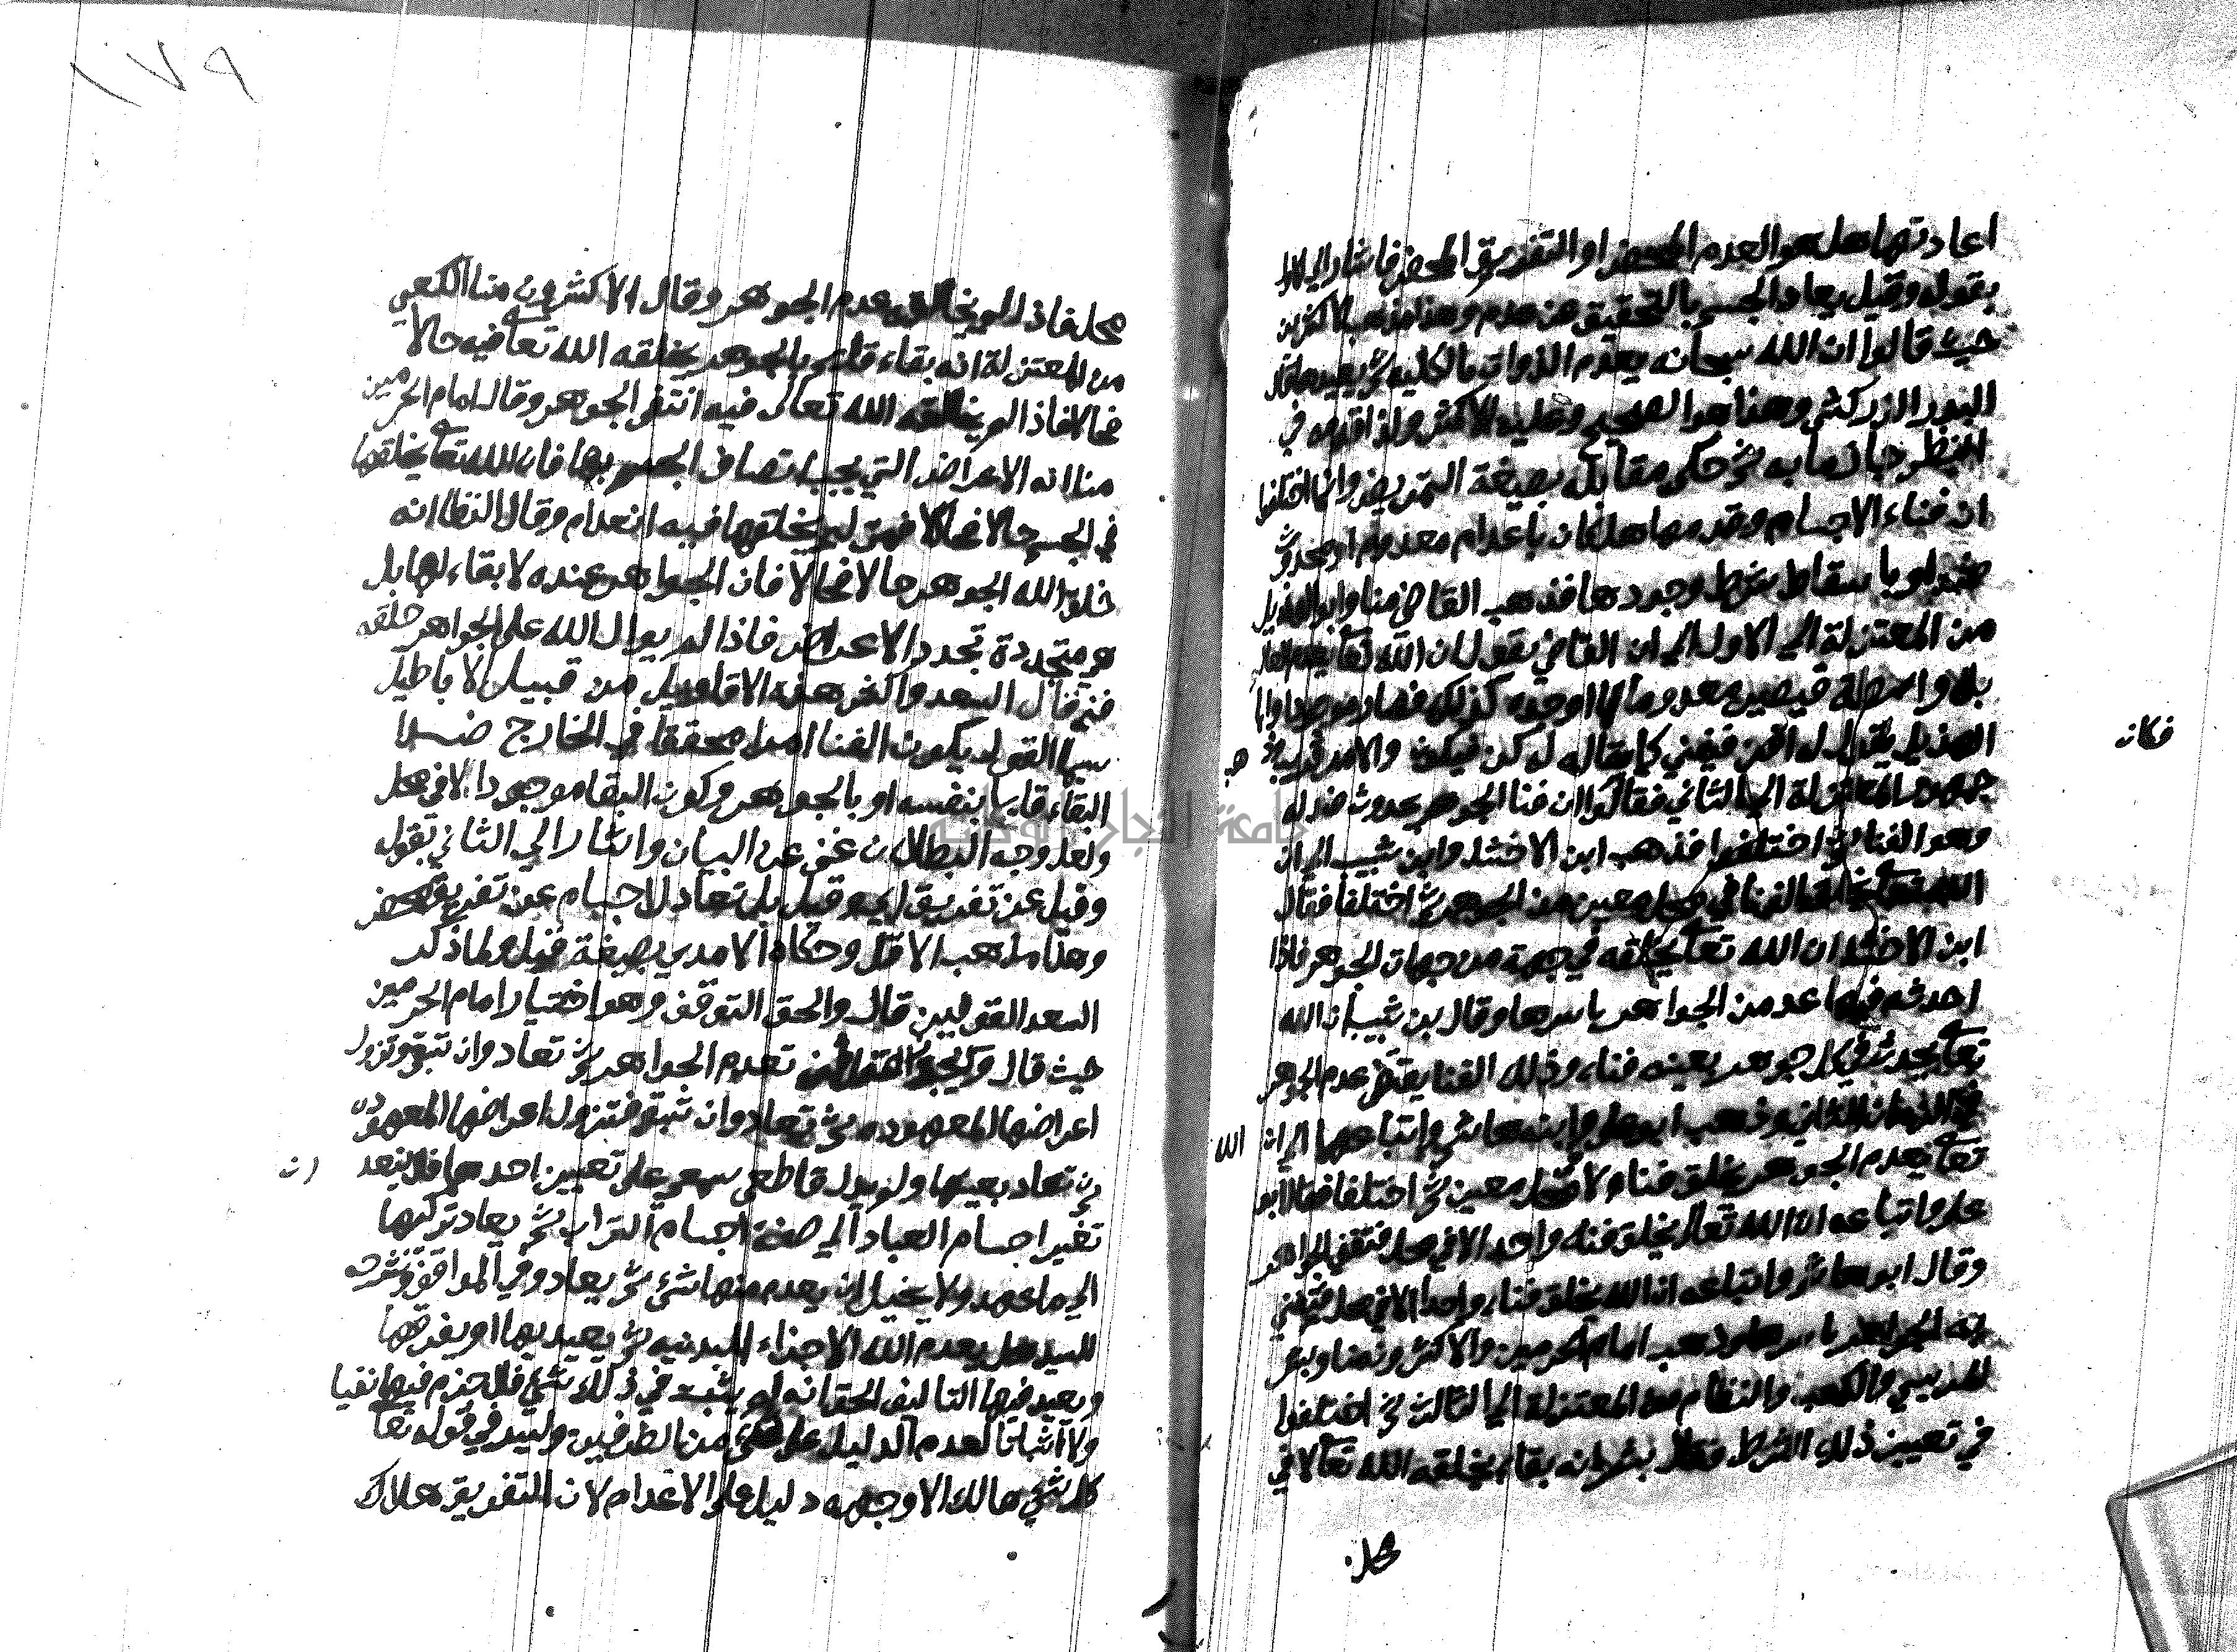 اعادتها هل هو العدم المحض او التفريق المحض فاشار الى الاول
بقوله وقيل يعاد الجسم بالتحقيق عن عدم وهذا مذهب الاكثرين
حيث قالوا ان الله سبحانه يعدم الذوات بالكلية ثم يعيدها قال
البدر الزركشي وهذا هو الصحيح وعليه الاكثر ولذا قدمه في
النظم جازما به ثم حكى مقابله بصيغة التمريض وانما اختلفوا
ان فناء الاجسام وقدمها هل كان باعدام معدوم او بحدوث
ضد او باسقاط شرط وجودها فذهب القاضي منا وابو الهذيل
من المعتزلة الى الاول الى ان القاضي يقول ان الله تعا يعدم العالم
بلا واسطة فيصير معدوما كما اوجده كذلك فصار موجودا وابا
الهذيل يقول ل افن فيفنى كما يقال له كن فيكون والامر قريب فذهب
جمهور المعتزلة الى الثاني فقالوا ان فنا الجوهر بحدوث ضد له
وهو الفنا ثم اختلفوا فذهب ابن الاخشد وابن شبيب الى ان
الله تعا يخلق الفنا في محل معين من الجوهر ثم اختلفا فقال
ابن الاخشد ان الله تعا يخلقه في جهة من جهات الجوهر فاذا
احدثه فيها عدمن الجواهر باسرها وقال بن شبيب ان الله
تعا يحدث في كل جوهر بعينه فناء وذلك الفنا يقتضي عدم الجوهر
في الزمان الثاني وذهب ابو علي وابنه هاشم واتباعهما الى ان الله
تعا يعدم الجوهر بخلق فناء لا في محل معين ثم اختلفا فقال ابو
علي واتباعه ان الله تعالى يخلق فناء واحدا لا في محل فتفنى الجواهر
وقال ابو هاشم واتباعه ان الله يخلق فناء واحدا لا في محل فتفنى
به الجواهر باسرها وذهب امام الحرمين والاكثرون منا وبشر
المريسي والكعبي والنظام من المعتزلة الى الثالث ثم اختلفوا
في تعيين ذلك الشرط فقال بشر انه بقاء يخلقه الله تعا لا في
محل
فكان
١٧٩
محل فاذا لم يخلقه عدم الجوهر وقال الاكثرون منا الكعبي
من المعتزلة انه بقاء قائم بالجوهر يخلقه الله تعا فيه حالا
فحالا فاذا لم يخلقه الله تعالى فيه انتفى الجوهر وقال امام الحرمين
منا انه الاعراض التي يجب اتصاف الجسم بها فان الله تعا يخلقها
في الجسم حالا فحالا فمتى لم يخلقها فيه انعدام وقال النظام انه
خلق الله الجوهر حالا فحالا فان الجواهر عنده لا بقاء لها بل
هي متجددة تجدد الاعراض فاذا لم يوال الله على الجواهر خلقه
فني قال السعد واكثر هذه الاقاويل من قبيل الاباطيل
سيما القول بكون الفنا امرا محققا في الخارج ضدا
البقاء قايما بنفسه او بالجوهر وكون البقا موجودا لا في محل
ولعل وجه البطلان غني عن البيان واشار الى الثاني بقوله
وقيل عن تفريق اي وقيل بل تعاد الاجسام عن تفريق محض
وهذا مذهب الاقل وحكاه الامدي بصيغة قيل ولما ذكر
السعد القولين قال والحق التوقف وهو اختيار امام الحرمين
حيث قال ويجوز تعدم الجواهر ثم تعاد وان تبقى وتزول
اعراضها المعهوده ثم تعاد وان تبقى فتزول اعراضها المعهوده
ثم تعاد بعينها ولم يدل قاطع سمعي على تعيين احدهما فلا يبعد ان
تغير اجسام العباد الى صفة اجسام التراب ثم يعاد تركيبها
الى ما عهد ولا يخيل ان يعدم منها شئ ثم يعاد وفي المواقف وشرحه
للسيد هل يعدم الله الاجزاء البدنيه ثم يعيديها او يفرقها
ويعيد فيها التاليف الحق انه لم يثبت في ذلك شئ فلا جزم فيها نفيا
ولا اثباتا لعدم الدليل على شئ من الطرفين وليس في قوله تعا
كل شئ هالك الا وجهه دليل على الاعدام لان التفريق هلاك
جامعة النجاح الوطنية